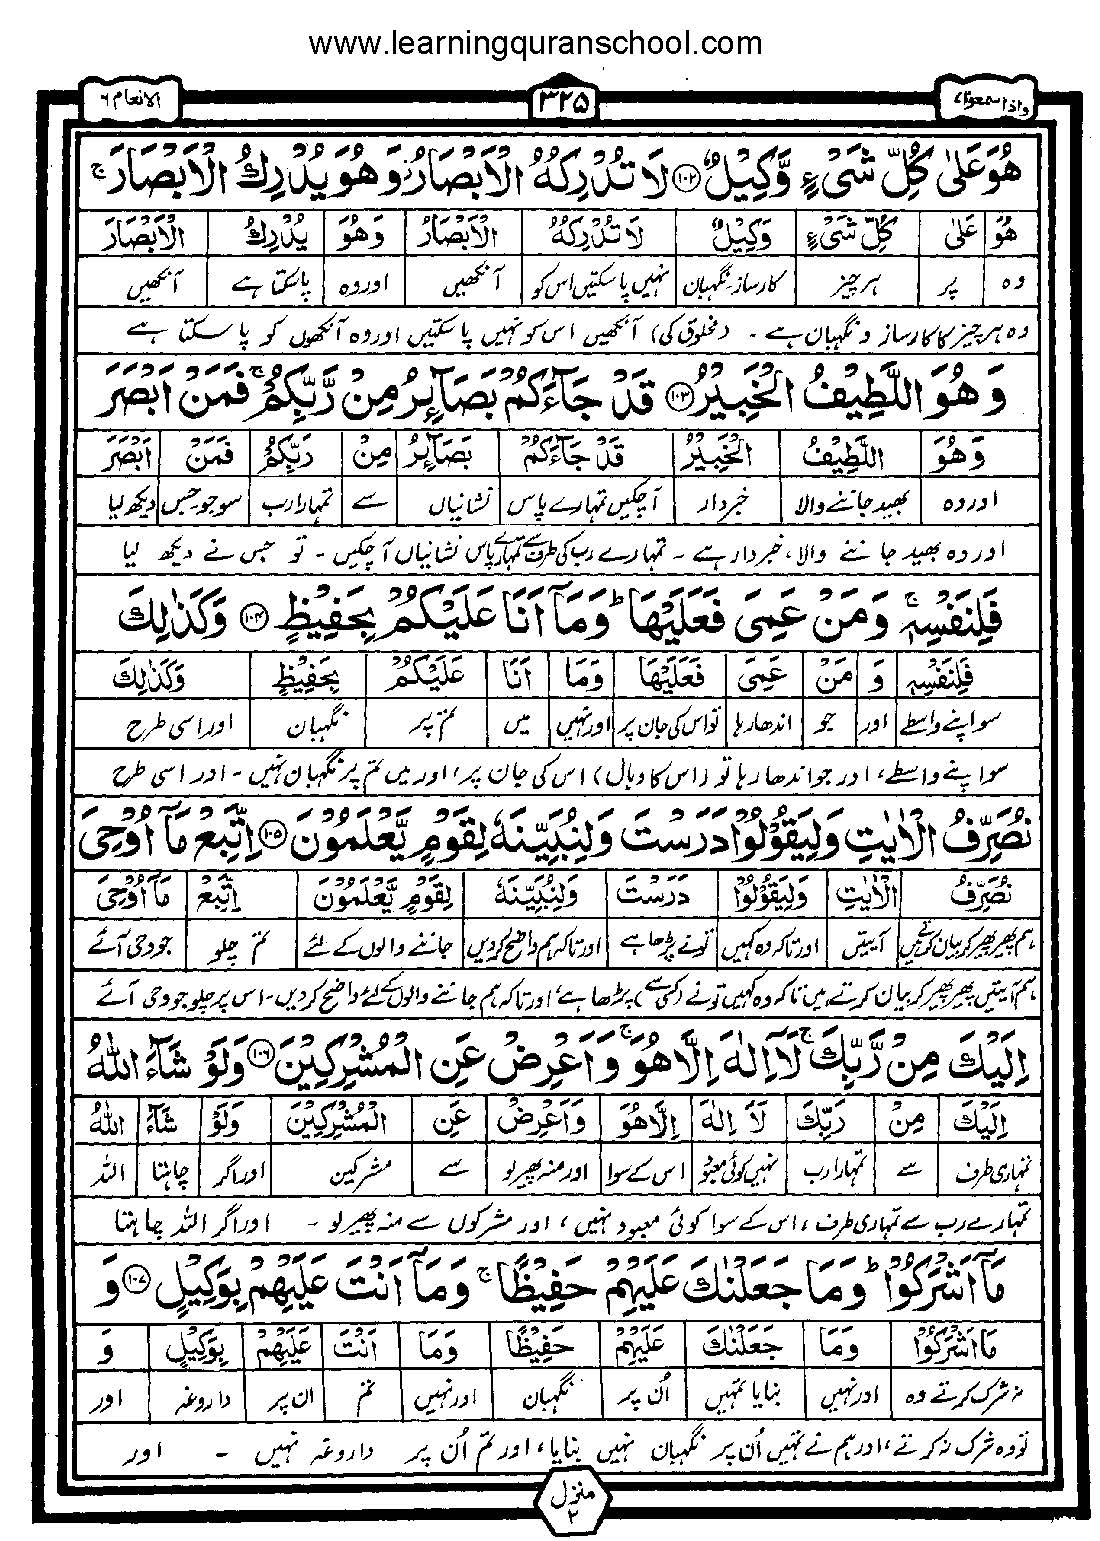 www.learningquranschool.com
واذاسمعوا۷
۳۲۵
الانعام ۶
هُوَ عَلٰى كُلِّ شَىْءٍ وَّكِيْلٌ ۝۱۰۲ لَا تُدْرِكُهُ الْاَبْصَارُ وَهُوَ يُدْرِكُ الْاَبْصَارَ ۚ
هُوَ عَلٰى كُلِّ شَىْءٍ وَكِيْلٌ لَا تُدْرِكُهُ الْاَبْصَارُ وَهُوَ يُدْرِكُ الْاَبْصَارَ
وہ پر ہر چیز کارساز نگہبان نہیں پا سکتیں اس کو آنکھیں اور وہ پا سکتا ہے آنکھیں
وہ ہر چیز کا کارساز و نگہبان ہے ۔ (مخلوق کی) آنکھیں اس کو نہیں پا سکتیں اور وہ آنکھوں کو پا سکتا ہے
وَهُوَ اللَّطِيْفُ الْخَبِيْرُ ۝۱۰۳ قَدْ جَآءَكُمْ بَصَآئِرُ مِنْ رَّبِّكُمْ ۚ فَمَنْ اَبْصَرَ
وَهُوَ اللَّطِيْفُ الْخَبِيْرُ قَدْ جَآءَكُمْ بَصَآئِرُ مِنْ رَبِّكُمْ فَمَنْ اَبْصَرَ
اور وہ بھید جاننے والا خبردار آچکیں تمہارے پاس نشانیاں سے تمہارا رب سو جو جس دیکھ لیا
اور وہ بھید جاننے والا، خبردار ہے ۔ تمہارے رب کی طرف سے تمہارے پاس نشانیاں آچکیں ۔ تو جس نے دیکھ لیا
فَلِنَفْسِهٖ ۚ وَمَنْ عَمِىَ فَعَلَيْهَا ؕ وَمَآ اَنَا عَلَيْكُمْ بِحَفِيْظٍ ۝۱۰۴ وَكَذٰلِكَ
فَلِنَفْسِهٖ وَ مَنْ عَمِىَ فَعَلَيْهَا وَمَا اَنَا عَلَيْكُمْ بِحَفِيْظٍ وَكَذٰلِكَ
سو اپنے واسطے اور جو اندھا رہا تو اس کی جان پر اور نہیں میں تم پر نگہبان اور اسی طرح
سو اپنے واسطے، اور جو اندھا رہا تو (اس کا وبال) اس کی جان پر، اور میں تم پر نگہبان نہیں ۔ اور اسی طرح
نُصَرِّفُ الْاٰيٰتِ وَلِيَقُوْلُوْا دَرَسْتَ وَلِنُبَيِّنَهٗ لِقَوْمٍ يَّعْلَمُوْنَ ۝۱۰۵ اِتَّبِعْ مَآ اُوْحِىَ
نُصَرِّفُ الْاٰيٰتِ وَلِيَقُوْلُوْا دَرَسْتَ وَلِنُبَيِّنَهٗ لِقَوْمٍ يَّعْلَمُوْنَ اِتَّبِعْ مَآ اُوْحِىَ
ہم پھیر پھیر کر بیان کرتے ہیں آیتیں اور تاکہ وہ کہیں تو نے پڑھا ہے اور تاکہ ہم واضح کردیں جاننے والوں کے لئے تم چلو جو وحی آئے
ہم آیتیں پھیر پھیر کر بیان کرتے ہیں تاکہ وہ کہیں تو نے (کسی سے) پڑھا ہے، اور تاکہ ہم جاننے والوں کے لئے واضح کردیں ۔ اس پر چلو جو وحی آئے
اِلَيْكَ مِنْ رَّبِّكَ ۚ لَآ اِلٰهَ اِلَّا هُوَ ۚ وَاَعْرِضْ عَنِ الْمُشْرِكِيْنَ ۝۱۰۶ وَلَوْ شَآءَ اللّٰهُ
اِلَيْكَ مِنْ رَبِّكَ لَآ اِلٰهَ اِلَّا هُوَ وَاَعْرِضْ عَنِ الْمُشْرِكِيْنَ وَلَوْ شَآءَ اللّٰهُ
تمہاری طرف سے تمہارا رب نہیں کوئی معبود اس کے سوا اور منہ پھیر لو سے مشرکین اور اگر چاہتا اللہ
تمہارے رب سے تمہاری طرف، اس کے سوا کوئی معبود نہیں، اور مشرکوں سے منہ پھیر لو ۔ اور اگر اللہ چاہتا
مَآ اَشْرَكُوْا ؕ وَمَا جَعَلْنٰكَ عَلَيْهِمْ حَفِيْظًا ۚ وَمَآ اَنْتَ عَلَيْهِمْ بِوَكِيْلٍ ۝۱۰۷ وَ
مَا اَشْرَكُوْا وَمَا جَعَلْنٰكَ عَلَيْهِمْ حَفِيْظًا وَمَا اَنْتَ عَلَيْهِمْ بِوَكِيْلٍ وَ
نہ شرک کرتے وہ اور نہیں بنایا تمہیں اُن پر نگہبان اور نہیں تم ان پر داروغہ اور
تو وہ شرک نہ کرتے، اور ہم نے تمہیں اُن پر نگہبان نہیں بنایا، اور تم اُن پر داروغہ نہیں ۔ اور
منزل ۲